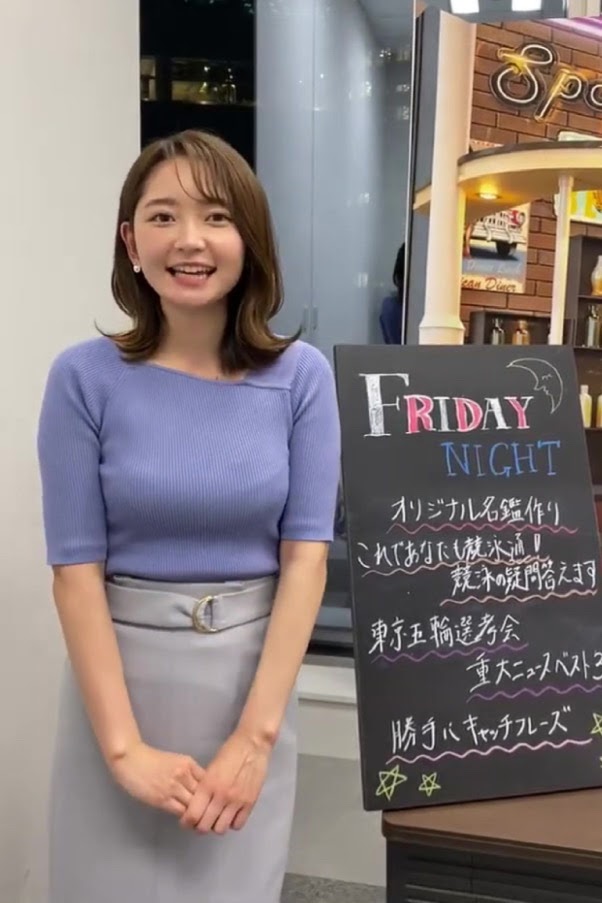 Spo
can Diner
FRIDAY
NIGHT
オリジナル名鑑作り
これであなたも競泳通!
競泳の疑問答えます
東京五輪選考会
重大ニュースベスト3
勝手にキャッチフレーズ